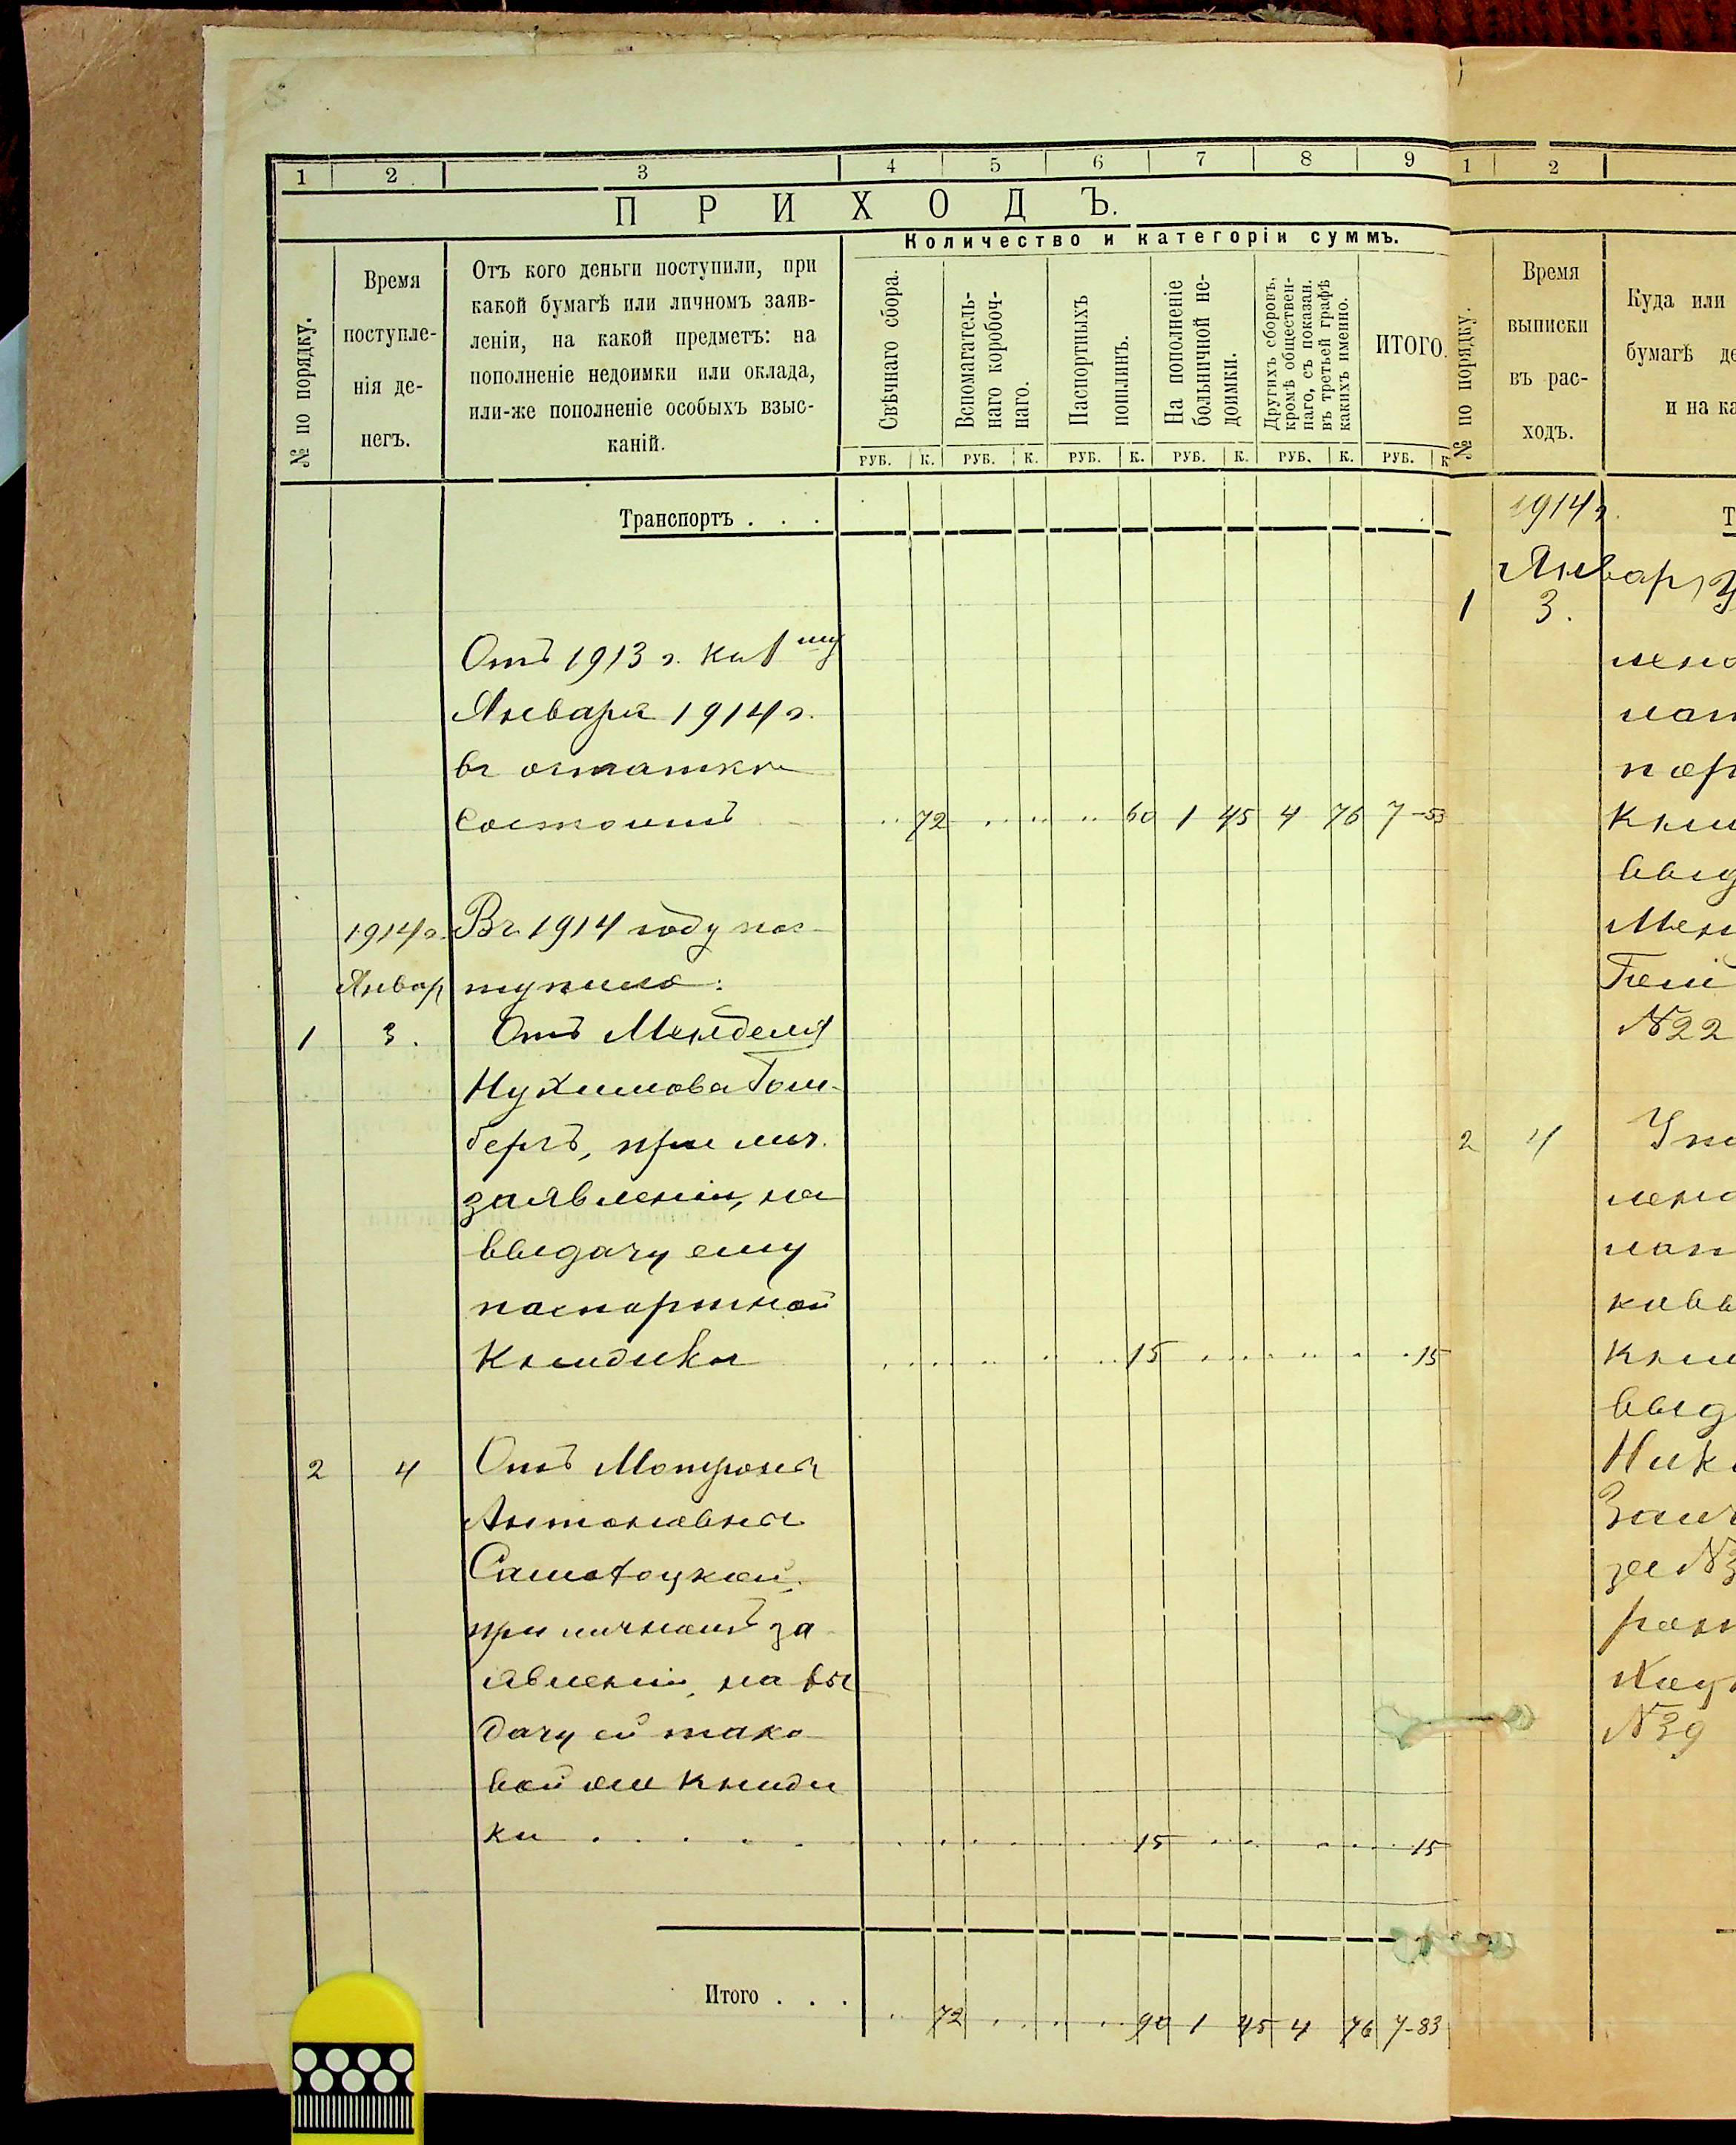 1 2 3 4 5 6 7 8 9
ПРИХОДЪ.
№ по порядку.
Время
поступле-
нія де-
негъ.
Отъ кого деньги поступили, при
какой бумагѣ или личномъ заяв-
леніи, на какой предметъ: на
пополненіе недоимки или оклада,
или-же пополненіе особыхъ взыс-
каній.
Количество и категоріи суммъ.
Свѣчнаго сбора.
Вспомагатель-
наго коробоч-
наго.
Паспортныхъ
пошлинъ.
На пополненіе
больничной не-
доимки.
Другихъ сборовъ,
кромѣ обществен-
наго, съ показан.
въ третьей графѣ
какихъ именно.
ИТОГО.
РУБ. К. РУБ. К. РУБ. К. РУБ. К. РУБ. К. РУБ. К
Транспортъ . . .
Отъ 1913 г. къ 1му
Января 1914 г.
въ остаткѣ
состоитъ 72 60 1 45 4 76 7-53
1914 г. Въ 1914 году пос-
Январ тупило:
1 3. Отъ Менделя
Нухимова
бергъ, при лич.
заявленіи, на
выдачу ему
паспортной
книжки 15 15
2 4 Отъ Мотроны
Антоновны
при личномъ за
явленіи, на вы
дачу ей тако
вой же книж
ки . . . . . 15 15
Итого . . . 72 90 1 45 4 76 7-83
1 2
№ по порядку.
Время
выписки
въ рас-
ходъ.
Куда или
бумагѣ де
и на ка
1914 г.
Т
Январ
1 3.
лено
пор
кни
выд
Мен
№22
2 4
лено
кни
выд
Ник
за №3
№39